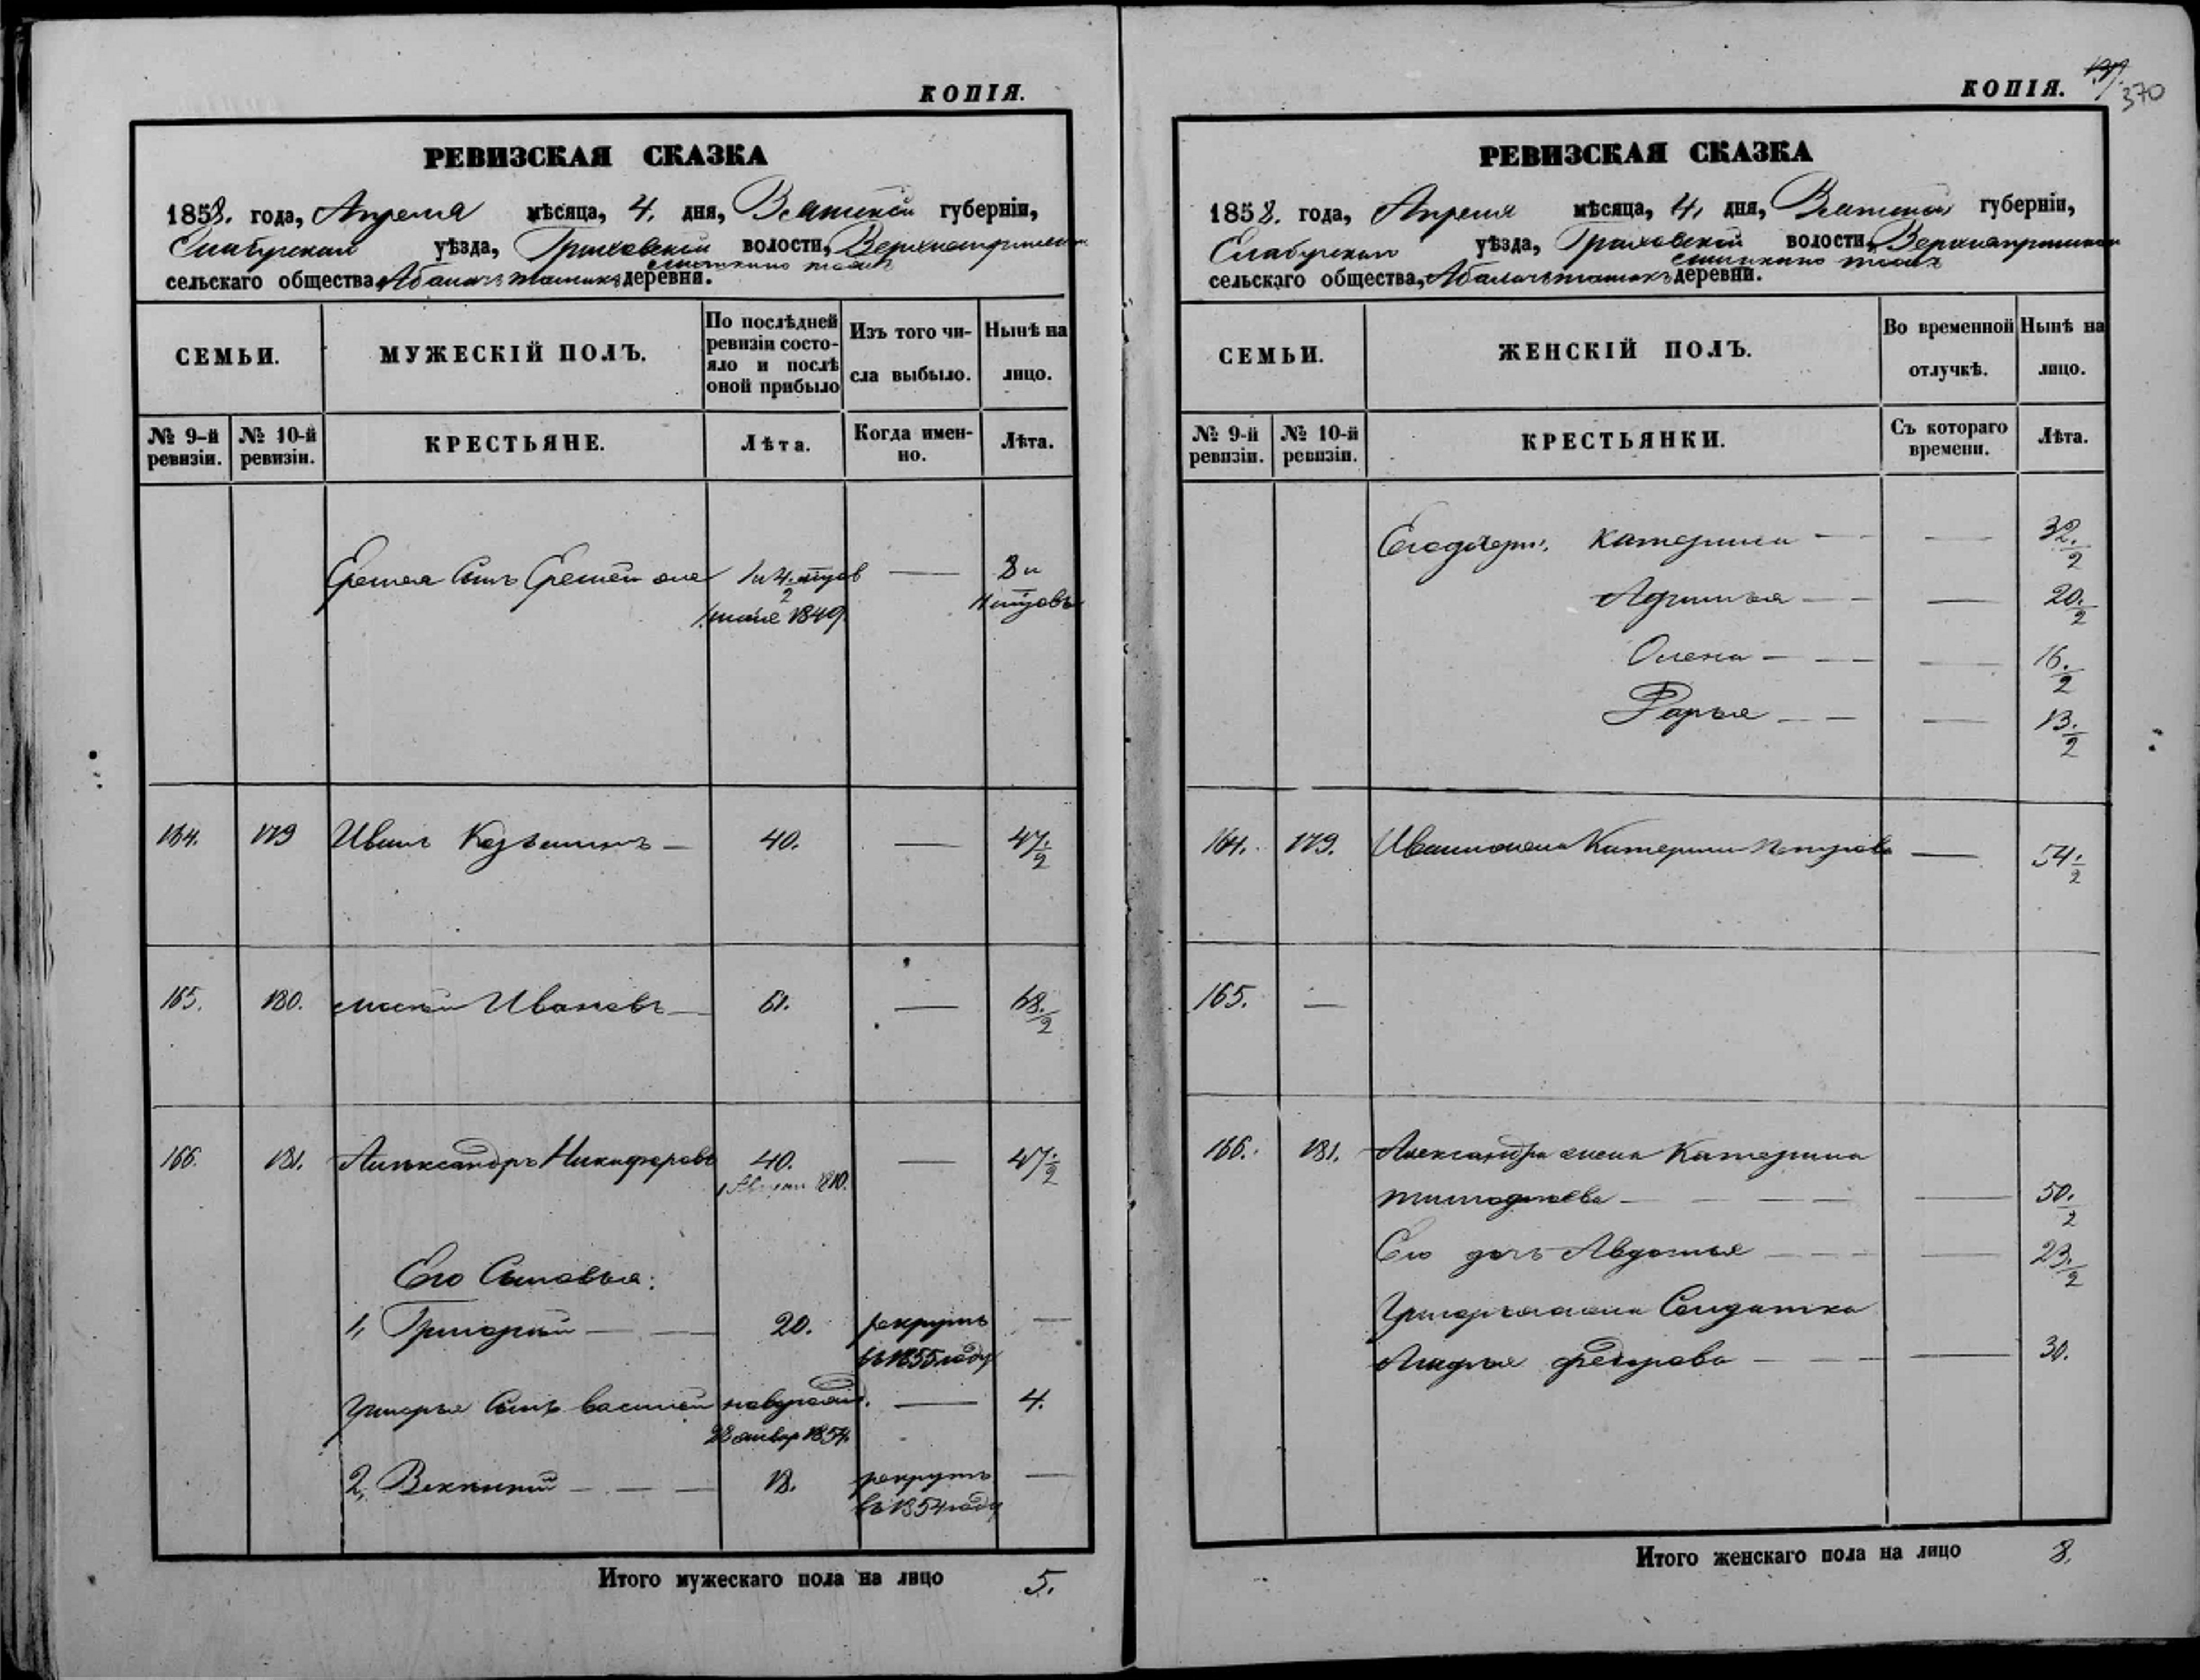 КОПІЯ.
РЕВИЗСКАЯ СКАЗКА
1858. года, Апреля мѣсяца, 4. дня, Вятской губерніи,
Елабугскаго уѣзда, Граховской волости,
сельскаго общества, деревни.
СЕМЬИ.
МУЖЕСКІЙ ПОЛЪ.
По послѣдней ревизіи состо-
яло и послѣ оной прибыло
Изъ того чи-
сла выбыло.
Нынѣ на
лицо.
№ 9-й ревизіи.
№ 10-й ревизіи.
КРЕСТЬЯНЕ.
Лѣта.
Когда имен-
но.
Лѣта.
Сынъ
1849.
164. 179 Иванъ — 40. — 47.½
165. 180. Ивановъ — 61. — 68.½
166. 181. Александръ Никифоровъ 40. — 47.½
1810.
Его Сыновья:
1, Григорий — — 20. рекрутъ —
въ 1855 году
Григорья Сынъ Василей новорожд. — 4.
28 январ 1854.
2, — — — 18. рекрутъ —
въ 1854 году
Итого мужескаго пола на лицо 5.
КОПІЯ.
370
РЕВИЗСКАЯ СКАЗКА
1858. года, Апреля мѣсяца, 4. дня, Вятской губерніи,
Елабугскаго уѣзда, Граховской волости,
сельскаго общества, деревни.
СЕМЬИ.
ЖЕНСКІЙ ПОЛЪ.
Во временной
отлучкѣ.
Нынѣ на
лицо.
№ 9-й ревизіи.
№ 10-й ревизіи.
КРЕСТЬЯНКИ.
Съ котораго
времени.
Лѣта.
Его дочери: Катерина — — 32.½
— — 20.½
Олена — — — 16.½
Дарья — — — 13.½
164. 179. Ивана жена Катерина Петрова — 54.½
165. —
166. 181. Александра жена Катерина
Тимофеева — — — — — 50.½
Его дочь Авдотья — — — — 23.½
Григорья жена Солдатка
Федорова — — — — 30.
Итого женскаго пола на лицо 8.